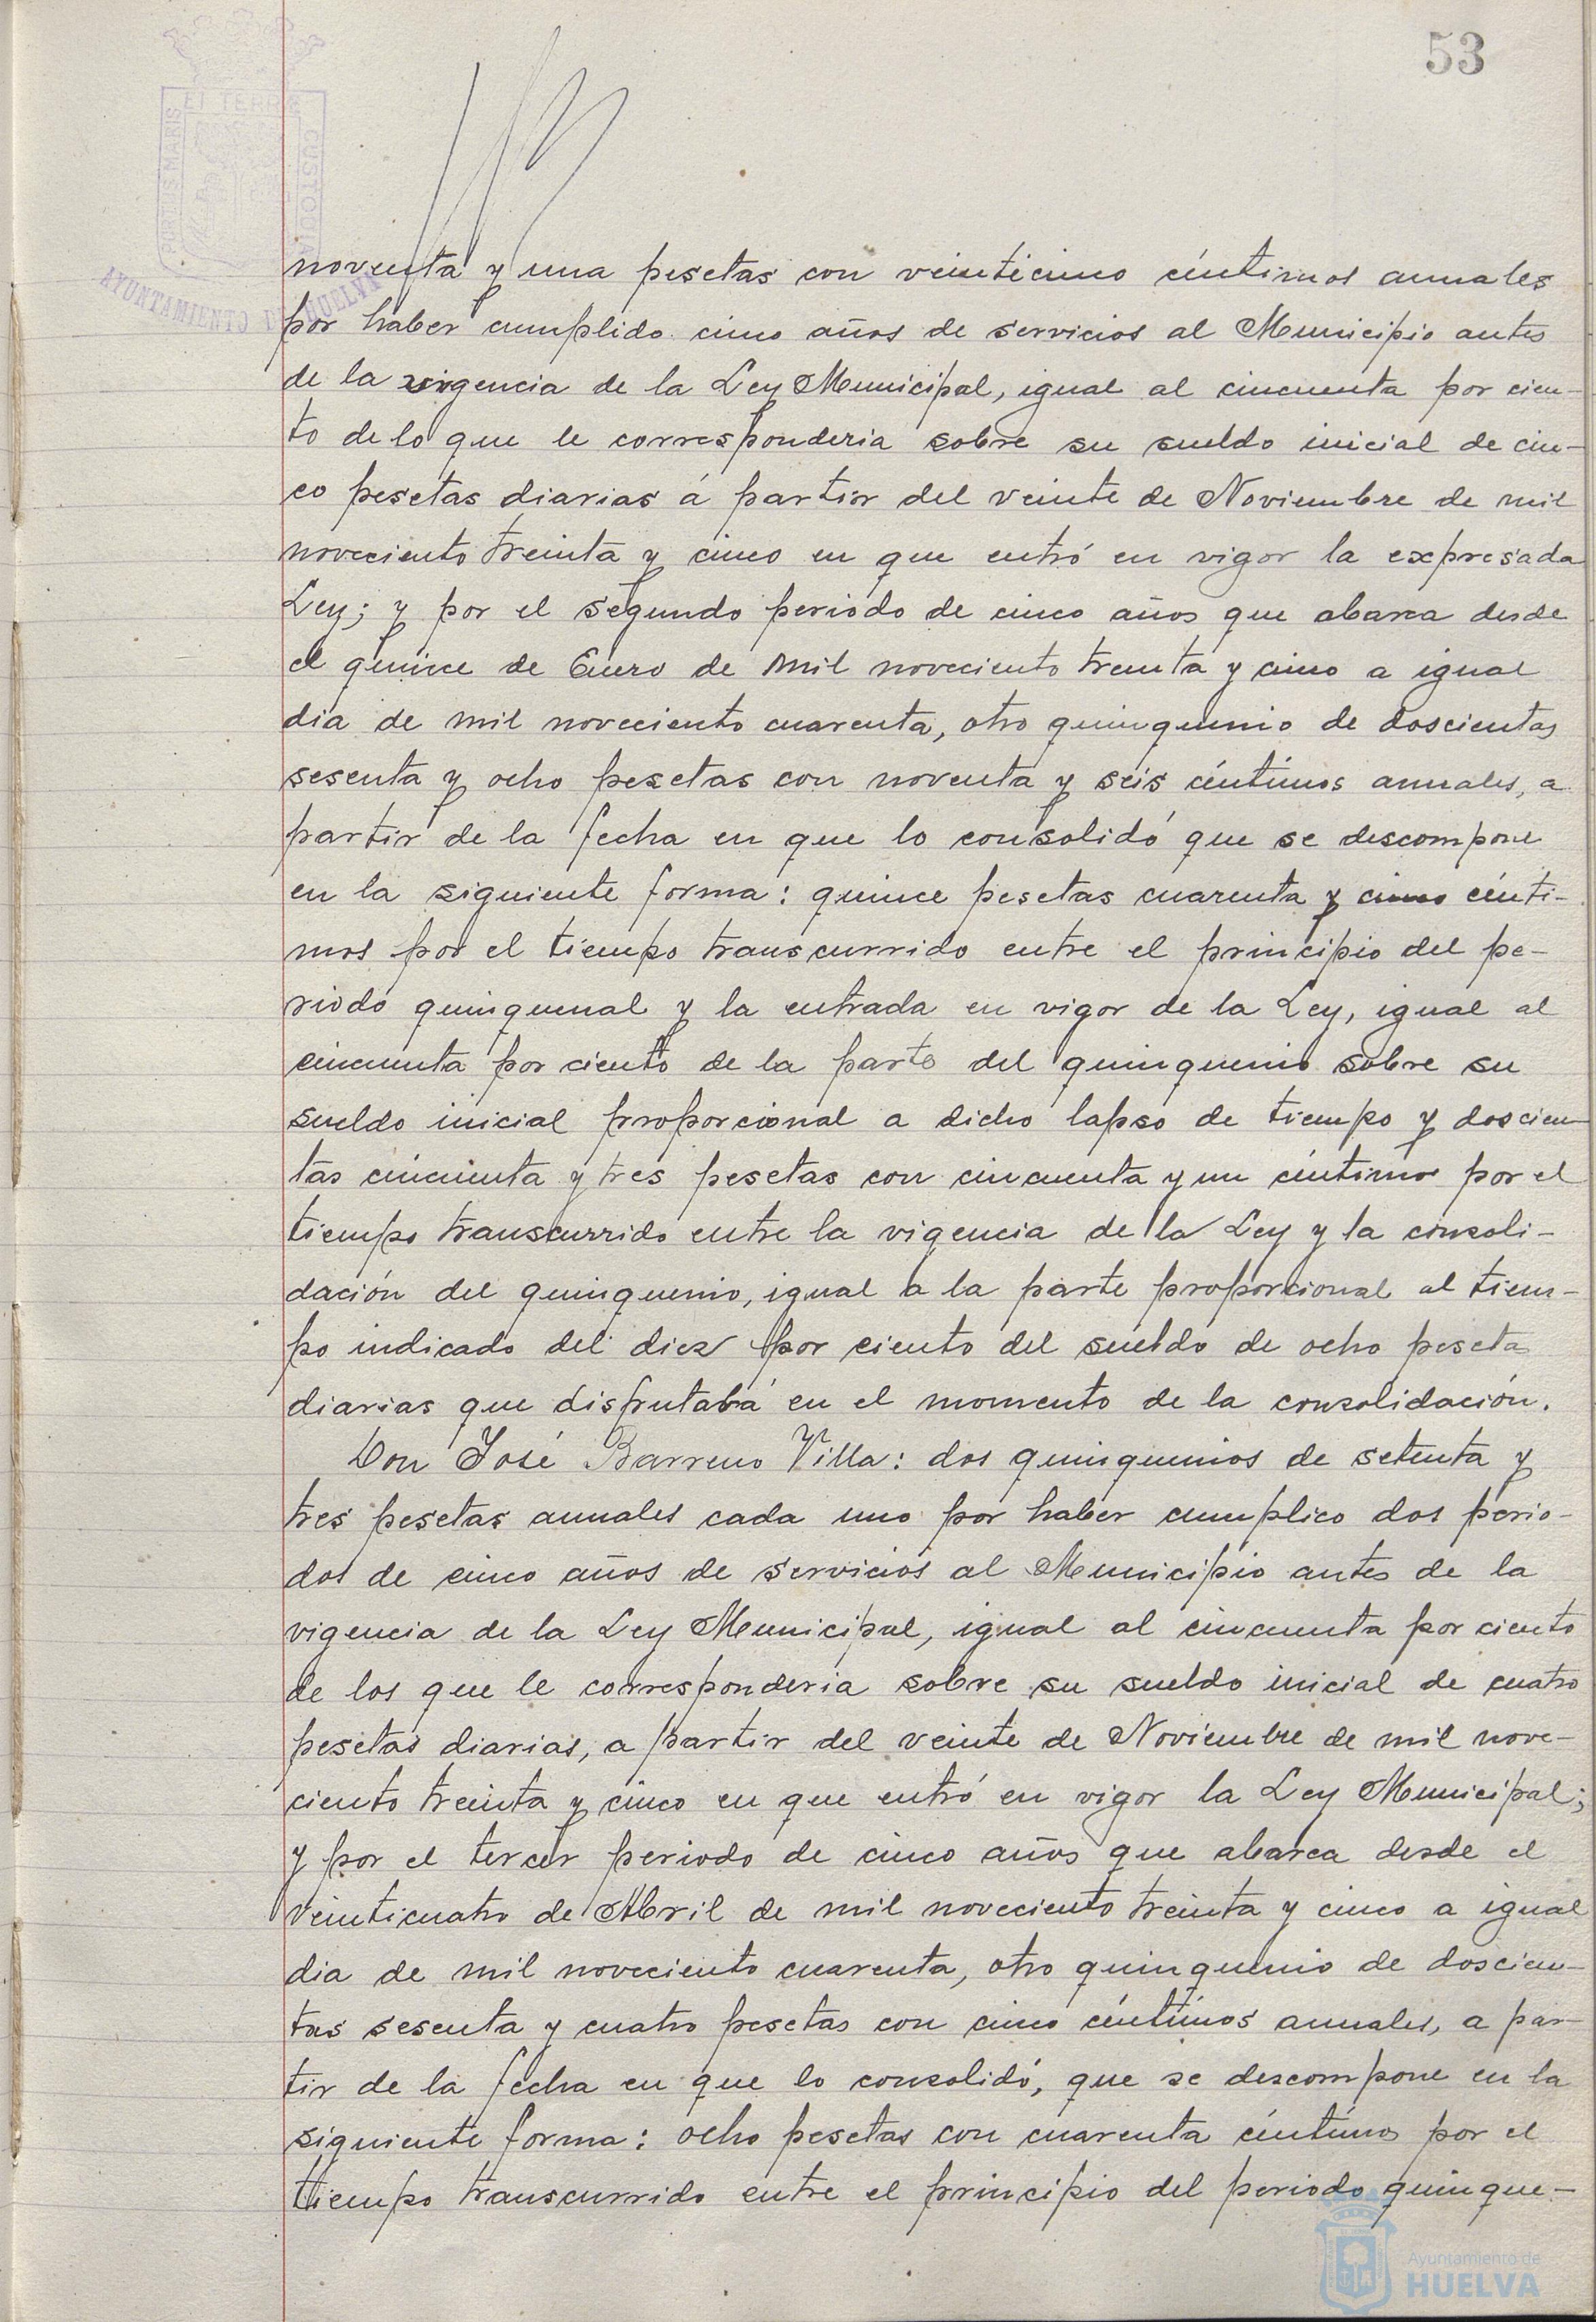 53
PORTUS MARIS
ET TERRE
CUSTODIA
AYUNTAMIENTO DE HUELVA
noventa y una pesetas con veinticinco céntimos anuales
por haber cumplido cinco años de servicios al Municipio antes
de la vigencia de la Ley Municipal, igual al cincuenta por cien-
to de lo que le corresponderia sobre su sueldo inicial de cin-
co pesetas diarias á partir del veinte de Noviembre de mil
noveciento treinta y cinco en que entró en vigor la expresada
Ley; y por el segundo periodo de cinco años que abarca desde
el quince de Enero de mil noveciento treinta y cinco a igual
dia de mil noveciento cuarenta, otro quinquenio de doscientas
sesenta y ocho pesetas con noventa y seis céntimos anuales, a
partir de la fecha en que lo consolidó que se descompone
en la siguiente forma: quince pesetas cuarenta y cinco cénti-
mos por el tiempo transcurrido entre el principio del pe-
riodo quinquenal y la entrada en vigor de la Ley, igual al
cincuenta por ciento de la parte del quinquenio sobre su
sueldo inicial proporcional a dicho lapso de tiempo y doscien-
tas cincuenta y tres pesetas con cincuenta y un céntimos por el
tiempo transcurrido entre la vigencia de la Ley y la consoli-
dación del quinquenio, igual a la parte proporcional al tiem-
po indicado del diez por ciento del sueldo de ocho peseta
diarias que disfrutaba en el momento de la consolidación.
Don José Barreno Villa: dos quinquenios de setenta y
tres pesetas anuales cada uno por haber cumplico dos perio-
dos de cinco años de servicios al Municipio antes de la
vigencia de la Ley Municipal, igual al cincuenta por ciento
de los que le corresponderia sobre su sueldo inicial de cuatro
pesetas diarias, a partir del veinte de Noviembre de mil nove-
ciento treinta y cinco en que entró en vigor la Ley Municipal;
y por el tercer periodo de cinco años que abarca desde el
veinticuatro de Abril de mil noveciento treinta y cinco a igual
dia de mil noveciento cuarenta, otro quinquenio de doscien-
tas sesenta y cuatro pesetas con cinco céntimos anuales, a par-
tir de la fecha en que lo consolidó, que se descompone en la
siguiente forma: ocho pesetas con cuarenta céntimos por el
tiempo transcurrido entre el principio del periodo quinque-
Ayuntamiento de
HUELVA